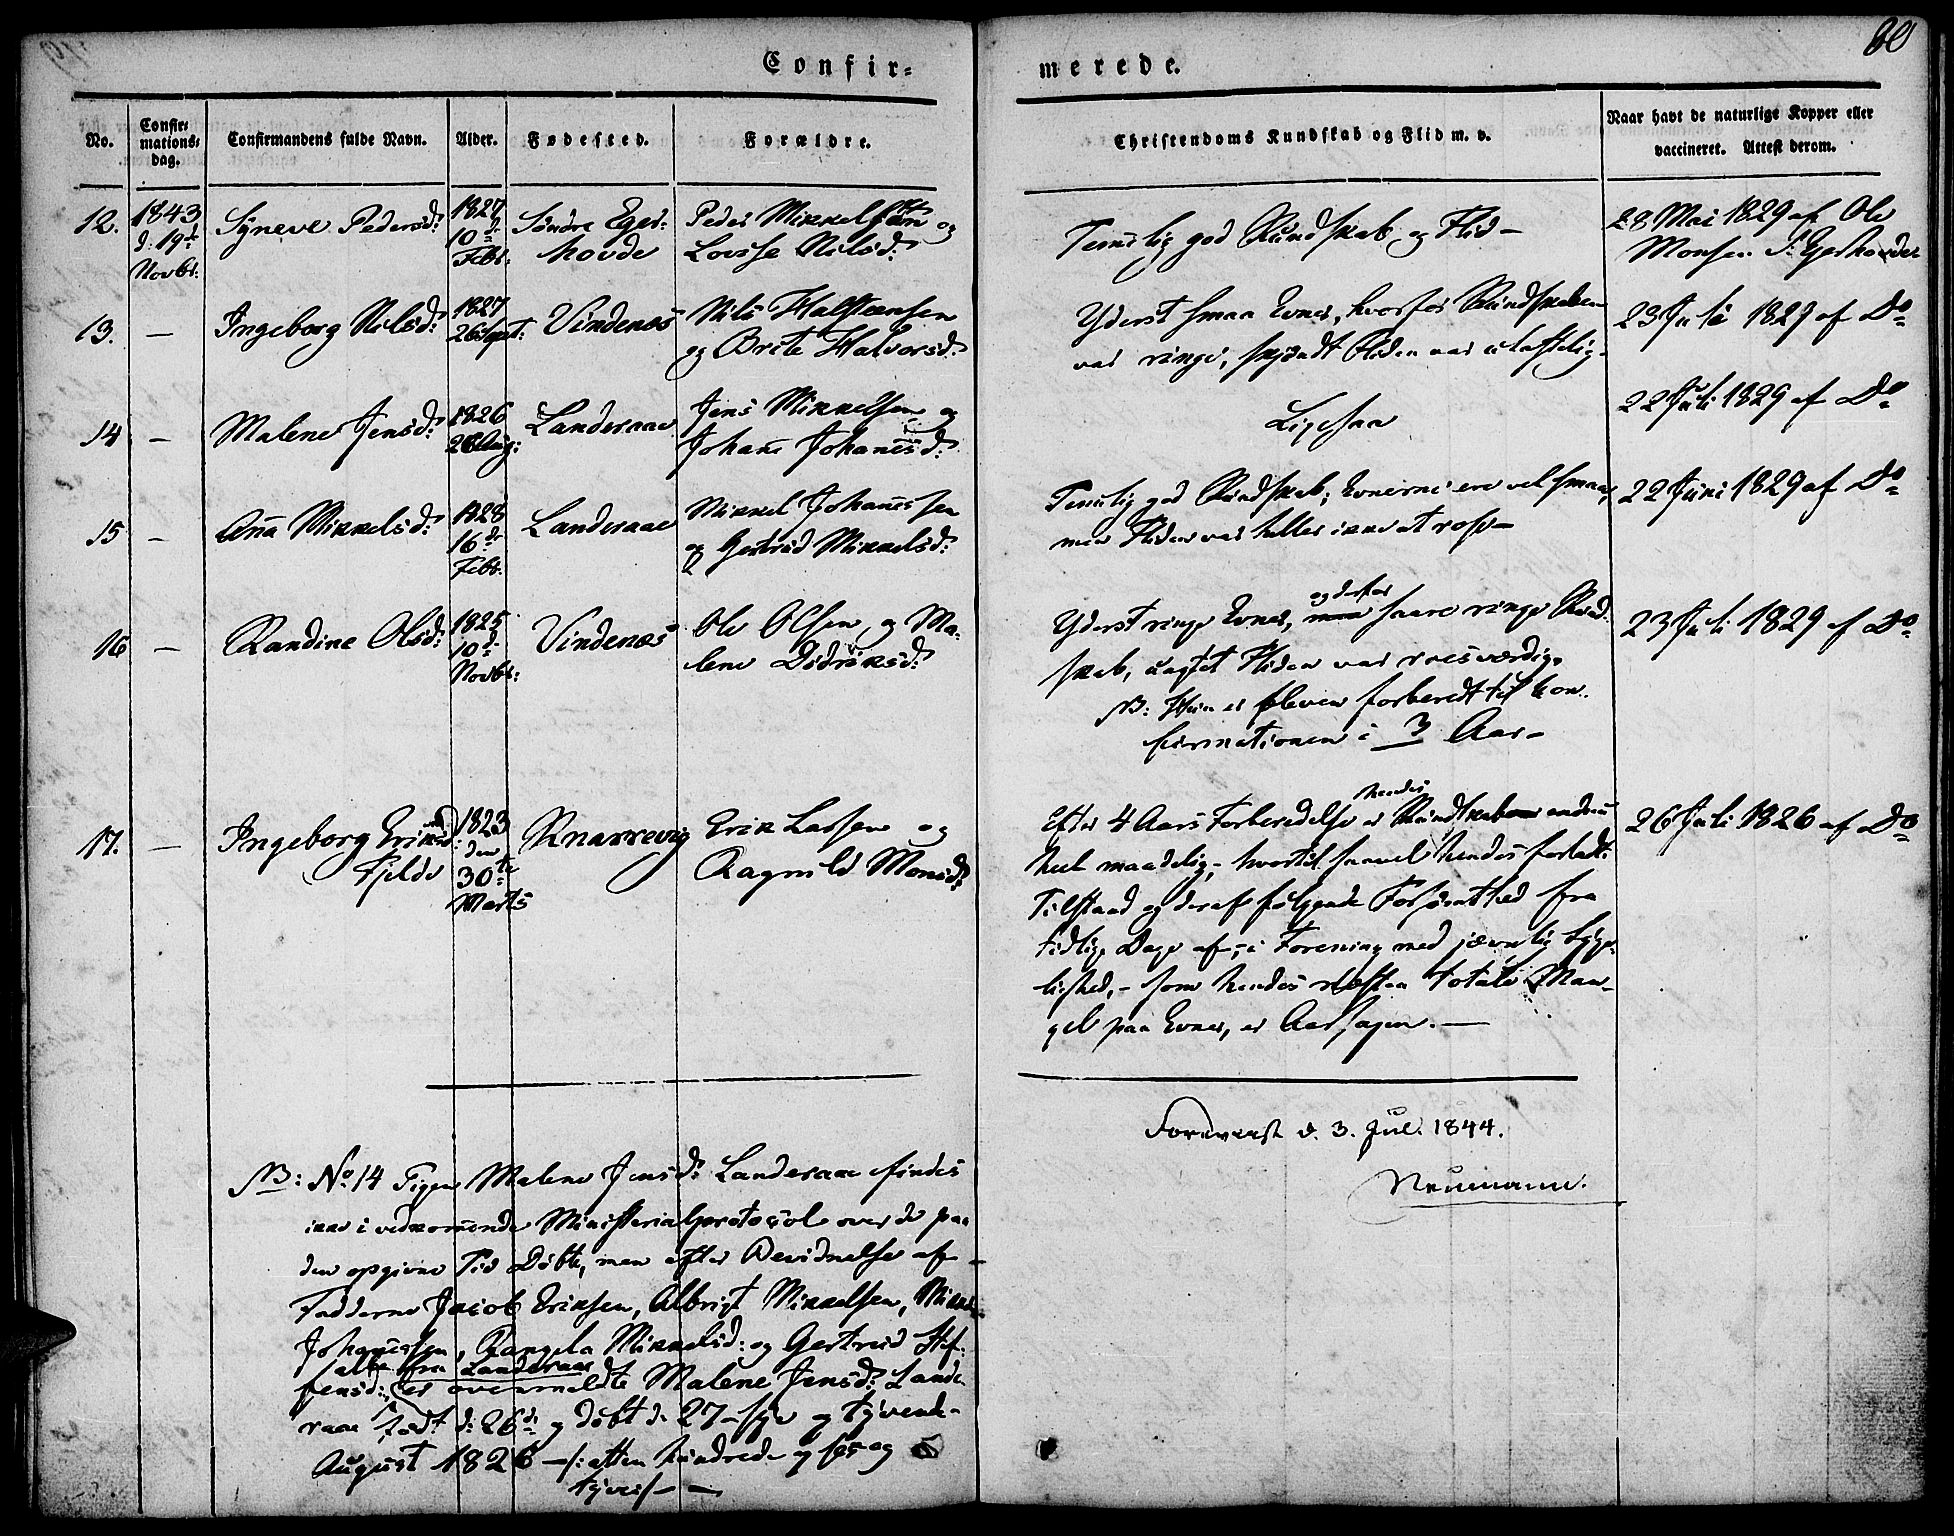 80
Confir-
merede.
No.
Confir-
mations-
dag.
Confirmandens fulde Navn.
Alder.
Fødested.
Forældre.
Christendoms Kundskab og Flid m. v.
Naar havt de naturlige Kopper eller
vaccineret. Attest derom.
12.
1843
d: 19de
Novbr:
Synneve Pedersd:
1827
10 d.
Febr.
Søndre Eges-
hovde
Peder Mikkelsen og
Nilsd:
Temelig god Kundskab og Flid –
28 Mai 1829 af Ole
Monsen
13. –
Ingeborg Nilsd:
1827
26 Sept:
Vindenæs
Nils Halstensen
og Brite Halvorsd:
Yderst smaa Evner, hvorfor Kundskaben
var ringe, skjøndt Fliden var ulastelig.
23 Juli 1829 af Do
14 –
Malene Jensd:
1826
26 Aug:
Landeraae
Jens Mikkelsen og
Johane Johanesd:
Ligesaa
22 Juli 1829 af Do
15 –
Ana Mikkelsd:
1828
16 de
Febr.
Landeraae
Mikkel Johanessen
og Gertrud Mikkelsd:
Temelig god Kundskab; Evnerne ere vel smaa,
men Fliden var heller ikke at rose –
22 Juni 1829 af Do
16 –
Randine Olsd:
1825
10 d.
Novbr:
Vindenæs
Ole Olsen og Ma-
lene Didriksd:
og derfor
Yderst ringe Evner, saare ringe Kund-
skab, uagtet Fliden var roesværdig.
NB: Hun er bleven forberedt til Con-
firmationen i 3 Aar –
23 Juli 1829 af Do
17. –
Ingeborg Eriksd:
Fjelde
1823
den
30te
Marts
Knarrevig
Erik Larsen og
Ragnild Monsd:
hendes
Efter 4 Aars Forberedelse er Kundskab endnu
heel maadelig, hvortil saavel hendes forladte
Tilstand og deraf følgende Forsømthed fra
tidlige Dage af, i Forening med jævnlig Syge-
lighed, – som hendes næsten totale Man-
gel paa Evner, er Aarsagen. –
26 Juli 1826 af Do
Foreviist d. 3. Jul. 1844.
Neumann.
NB: No 14 Pigen Malene Jensd: Landeraae findes
ikke i vedkommende Ministerialprotocol over de paa
den opgivne Tid Døbte, men efter Bevidnelse af
Fadderne Jacob Eriksen, Albrigt Mikkelsen, Mikkel
Johanessen, Rangela Mikkelsd: og Gertrud Stef-
alle fra Landeraae
fensd: er ovenmeldte Malene Jensd: Lande-
raae født d: 26 d: og døbt d: 27 – syv og tyvende –
August 1826 – /: atten hundrede og sex og
tyve :/ –